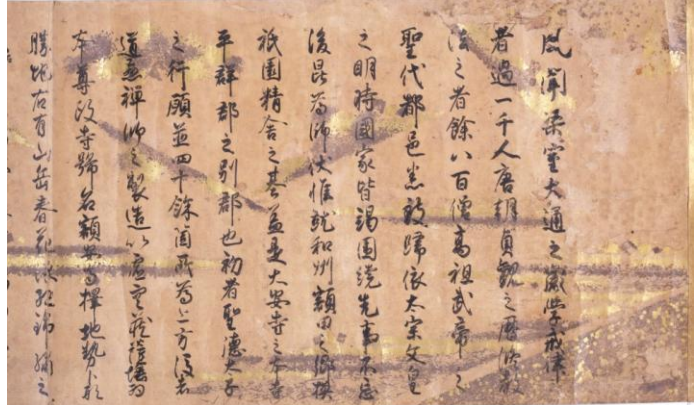 風聞梁室大通之歲學戒律
者過一千人唐朝貞觀之曆演教
法之者餘八百僧高祖武帝之
聖代都邑悉致歸依太宗文皇
之明時國家皆竭圍繞先事不忘
後昆為師伏惟就和州額田之鄉模
祇園精舍之基蓋是大安寺之本寺
平群郡之別郡也初者聖德太子
之行願並四十餘箇 為上方後者
道慈禪師之製造以虛空藏 為
本尊改寺號名額安寺擇地勢卜形
勝地右有山岳春花 錦繡之